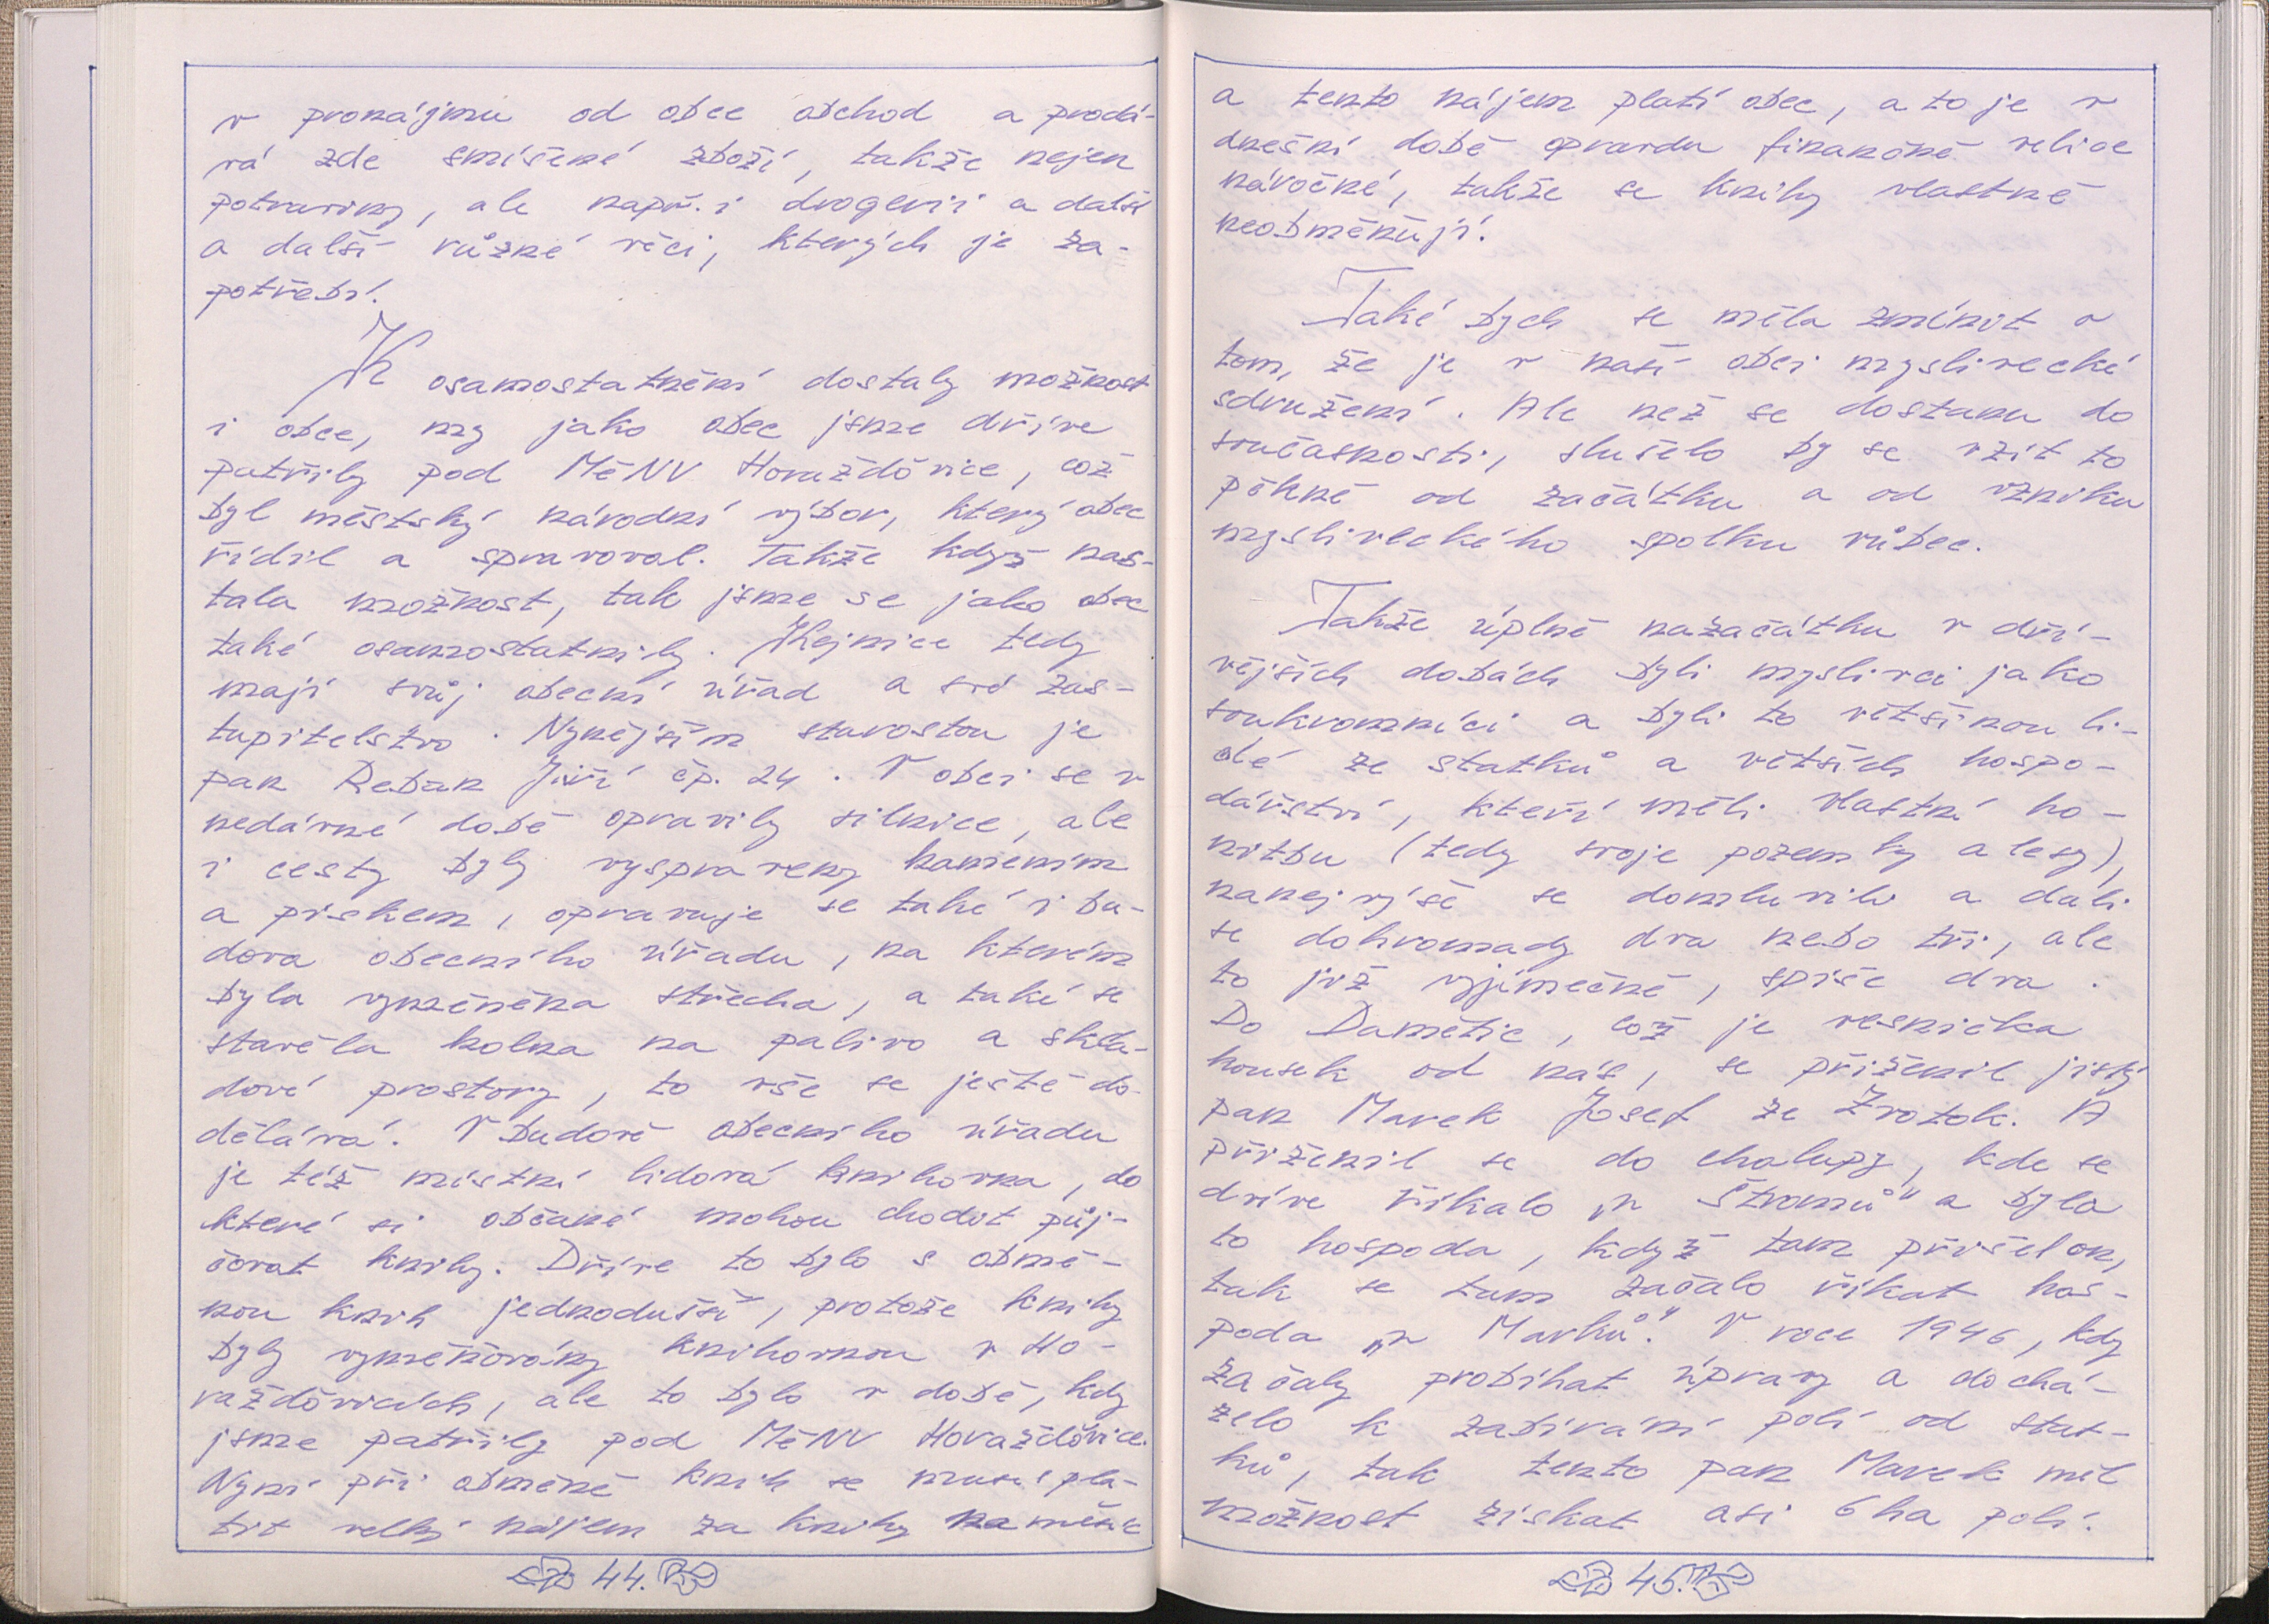 v pronájmu od obce obchod a prodá-
vá zde smíšené zboží, takže nejen
potraviny, ale např. i drogerii a další
a další různé věci, kterých je za-
potřebí.
K osamostatnění dostaly možnost
i obce, my jako obec jsme dříve
patřily pod MěNV Horažďovice, což
byl městský národní výbor, který obec
řídil a spravoval. Takže když nas-
tala možnost, tak jsme se jako obec
také osamostatnily. Kejnice tedy
mají svůj obecní úřad a své zas-
tupitelstvo. Nynějším starostou je
pan Reban Jiří čp. 24. V obci se v
nedávné době opravily silnice, ale
i cesty byly vyspraveny kamením
a pískem, opravuje se také i bu-
dova obecního úřadu, na kterém
byla vyměněna střecha, a také se
stavěla kolna na palivo a skla-
dové prostory, to vše se ještě do-
dělává. V budově obecního úřadu
je též místní lidová knihovna, do
které si občané mohou chodit půj-
čovat knihy. Dříve to bylo s obmě-
nou knih jednodušší, protože knihy
byly vyměňovány knihovnou v Ho-
ražďovicích, ale to bylo v době, kdy
jsme patřily pod MěNV Horažďovice.
Nyní při obměně knih se musí pla-
tit velký nájem za knihy na měsíc
44.
a tento nájem platí obec, a to je v
dnešní době opravdu finančně velice
náročné, takže se knihy vlastně
neobměňují.
Také bych se měla zmínit o
tom, že je v naší obci myslivecké
sdružení. Ale než se dostanu do
současnosti, slušelo by se vzít to
pěkně od začátku a od vzniku
mysliveckého spolku vůbec.
Takže úplně nazačátku v dří-
vějších dobách byli myslivci jako
soukromníci a byli to většinou li-
dé ze statků a větších hospo-
dářství, kteří měli vlastní ho-
nitbu (tedy svoje pozemky a lesy),
nanejvýše se domluvili a dali
se dohromady dva nebo tři, ale
to již vyjímečně, spíše dva.
Do Damětic, což je vesnička
kousek od nás, se přiženil jistý
pan Marek Josef ze Zvotok. A
přiženil se do chalupy, kde se
dříve říkalo „u Štromů" a byla
to hospoda, když tam přišel on,
tak se tam začalo říkat hos-
poda „u Marků". V roce 1946, kdy
začaly probíhat úpravy a dochá-
zelo k zabírání polí od stat-
ků, tak tento pan Marek měl
možnost získat asi 6 ha polí.
45.